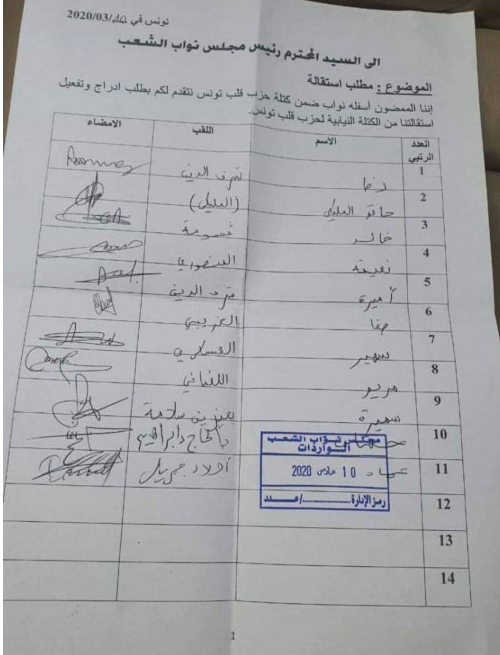 تونس في 10/03/2020
الى السيد المحترم رئيس مجلس نواب الشعب
الموضوع : مطلب استقالة
إننا الممضون أسفله نواب ضمن كتلة حزب قلب تونس نتقدم لكم بطلب ادراج وتفعيل
استقالتنا من الكتلة النيابية لحزب قلب تونس.
العدد الرتبي الاسم اللقب الامضاء
1 رضا شرف الدين
2 حاتم المليكي (المليكي)
3 خالد قسومة
4 نعيمة المنصوري
5 أميرة شرف الدين
6 صفا الغريبي
7 سهير العسكري
8 مريم اللغماني
9 سميرة بن سلامة
10 بالحاج إبراهيم
11 عماد أولاد جبريل
مجلس نواب الشعب
الواردات
10 مارس 2020
رمز الإدارة ......../عدد
12
13
14
1